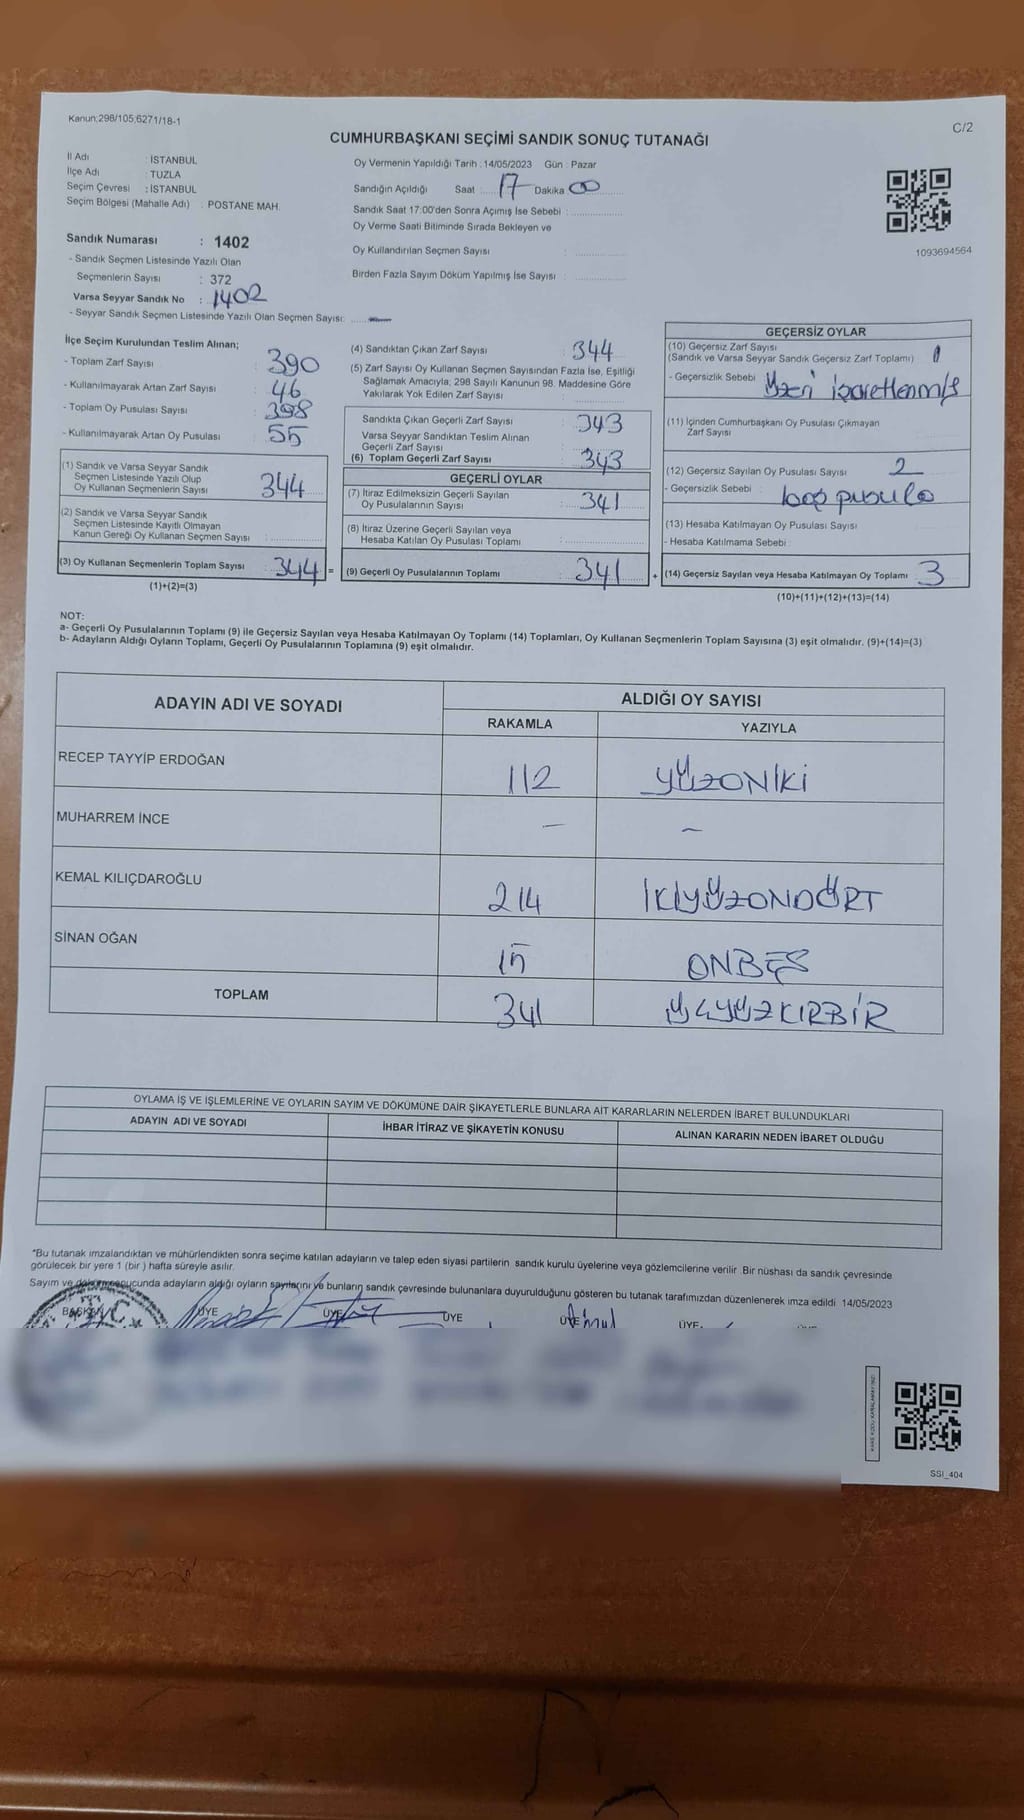 Kanun:298/105;6271/18-1
C/2
CUMHURBAŞKANI SEÇİMİ SANDIK SONUÇ TUTANAĞI
İl Adı : İSTANBUL
İlçe Adı : TUZLA
Seçim Çevresi : İSTANBUL
Seçim Bölgesi (Mahalle Adı) : POSTANE MAH.
Sandık Numarası : 1402
- Sandık Seçmen Listesinde Yazılı Olan
Seçmenlerin Sayısı : 372
Varsa Seyyar Sandık No : 1402
- Seyyar Sandık Seçmen Listesinde Yazılı Olan Seçmen Sayısı:
Oy Vermenin Yapıldığı Tarih : 14/05/2023 Gün : Pazar
Sandığın Açıldığı Saat 17 Dakika 00
Sandık Saat 17:00'den Sonra Açımış İse Sebebi :
Oy Verme Saati Bitiminde Sırada Bekleyen ve
Oy Kullandırılan Seçmen Sayısı :
Birden Fazla Sayım Döküm Yapılmış İse Sayısı :
1093694564
İlçe Seçim Kurulundan Teslim Alınan;
- Toplam Zarf Sayısı : 390
- Kullanılmayarak Artan Zarf Sayısı : 46
- Toplam Oy Pusulası Sayısı : 398
- Kullanılmayarak Artan Oy Pusulası : 55
(1) Sandık ve Varsa Seyyar Sandık
Seçmen Listesinde Yazılı Olup
Oy Kullanan Seçmenlerin Sayısı : 344
(2) Sandık ve Varsa Seyyar Sandık
Seçmen Listesinde Kayıtlı Olmayan
Kanun Gereği Oy Kullanan Seçmen Sayısı :
(3) Oy Kullanan Seçmenlerin Toplam Sayısı 344 =
(1)+(2)=(3)
(4) Sandıktan Çıkan Zarf Sayısı : 344
(5) Zarf Sayısı Oy Kullanan Seçmen Sayısından Fazla İse, Eşitliği
Sağlamak Amacıyla; 298 Sayılı Kanunun 98. Maddesine Göre
Yakılarak Yok Edilen Zarf Sayısı :
Sandıkta Çıkan Geçerli Zarf Sayısı : 343
Varsa Seyyar Sandıktan Teslim Alınan
Geçerli Zarf Sayısı :
(6) Toplam Geçerli Zarf Sayısı : 343
GEÇERLİ OYLAR
(7) İtiraz Edilmeksizin Geçerli Sayılan
Oy Pusulalarının Sayısı : 341
(8) İtiraz Üzerine Geçerli Sayılan veya
Hesaba Katılan Oy Pusulası Toplamı :
(9) Geçerli Oy Pusulalarının Toplamı : 341 +
GEÇERSİZ OYLAR
(10) Geçersiz Zarf Sayısı
(Sandık ve Varsa Seyyar Sandık Geçersiz Zarf Toplamı) : 1
- Geçersizlik Sebebi : Üzeri işaretlenmiş
(11) İçinden Cumhurbaşkanı Oy Pusulası Çıkmayan
Zarf Sayısı
(12) Geçersiz Sayılan Oy Pusulası Sayısı : 2
- Geçersizlik Sebebi : boş pusula
(13) Hesaba Katılmayan Oy Pusulası Sayısı
- Hesaba Katılmama Sebebi :
(14) Geçersiz Sayılan veya Hesaba Katılmayan Oy Toplamı : 3
(10)+(11)+(12)+(13)=(14)
NOT:
a- Geçerli Oy Pusulalarının Toplamı (9) ile Geçersiz Sayılan veya Hesaba Katılmayan Oy Toplamı (14) Toplamları, Oy Kullanan Seçmenlerin Toplam Sayısına (3) eşit olmalıdır. (9)+(14)=(3)
b- Adayların Aldığı Oyların Toplamı, Geçerli Oy Pusulalarının Toplamına (9) eşit olmalıdır.
ADAYIN ADI VE SOYADI ALDIĞI OY SAYISI
RAKAMLA YAZIYLA
RECEP TAYYİP ERDOĞAN 112 YÜZONİKİ
MUHARREM İNCE - -
KEMAL KILIÇDAROĞLU 214 İKİYÜZONDÖRT
SİNAN OĞAN 15 ONBEŞ
TOPLAM 341 ÜÇYÜZKIRBİR
OYLAMA İŞ VE İŞLEMLERİNE VE OYLARIN SAYIM VE DÖKÜMÜNE DAİR ŞİKAYETLERLE BUNLARA AİT KARARLARIN NELERDEN İBARET BULUNDUKLARI
ADAYIN ADI VE SOYADI İHBAR İTİRAZ VE ŞİKAYETİN KONUSU ALINAN KARARIN NEDEN İBARET OLDUĞU
*Bu tutanak imzalandıktan ve mühürlendikten sonra seçime katılan adayların ve talep eden siyasi partilerin sandık kurulu üyelerine veya gözlemcilerine verilir. Bir nüshası da sandık çevresinde
görülecek bir yere 1 (bir ) hafta süreyle asılır.
Sayım ve döküm sonucunda adayların aldığı oyların sayılarını ve bunların sandık çevresinde bulunanlara duyurulduğunu gösteren bu tutanak tarafımızdan düzenlenerek imza edildi 14/05/2023
BAŞKAN ÜYE ÜYE ÜYE ÜYE ÜYE
SSİ_404